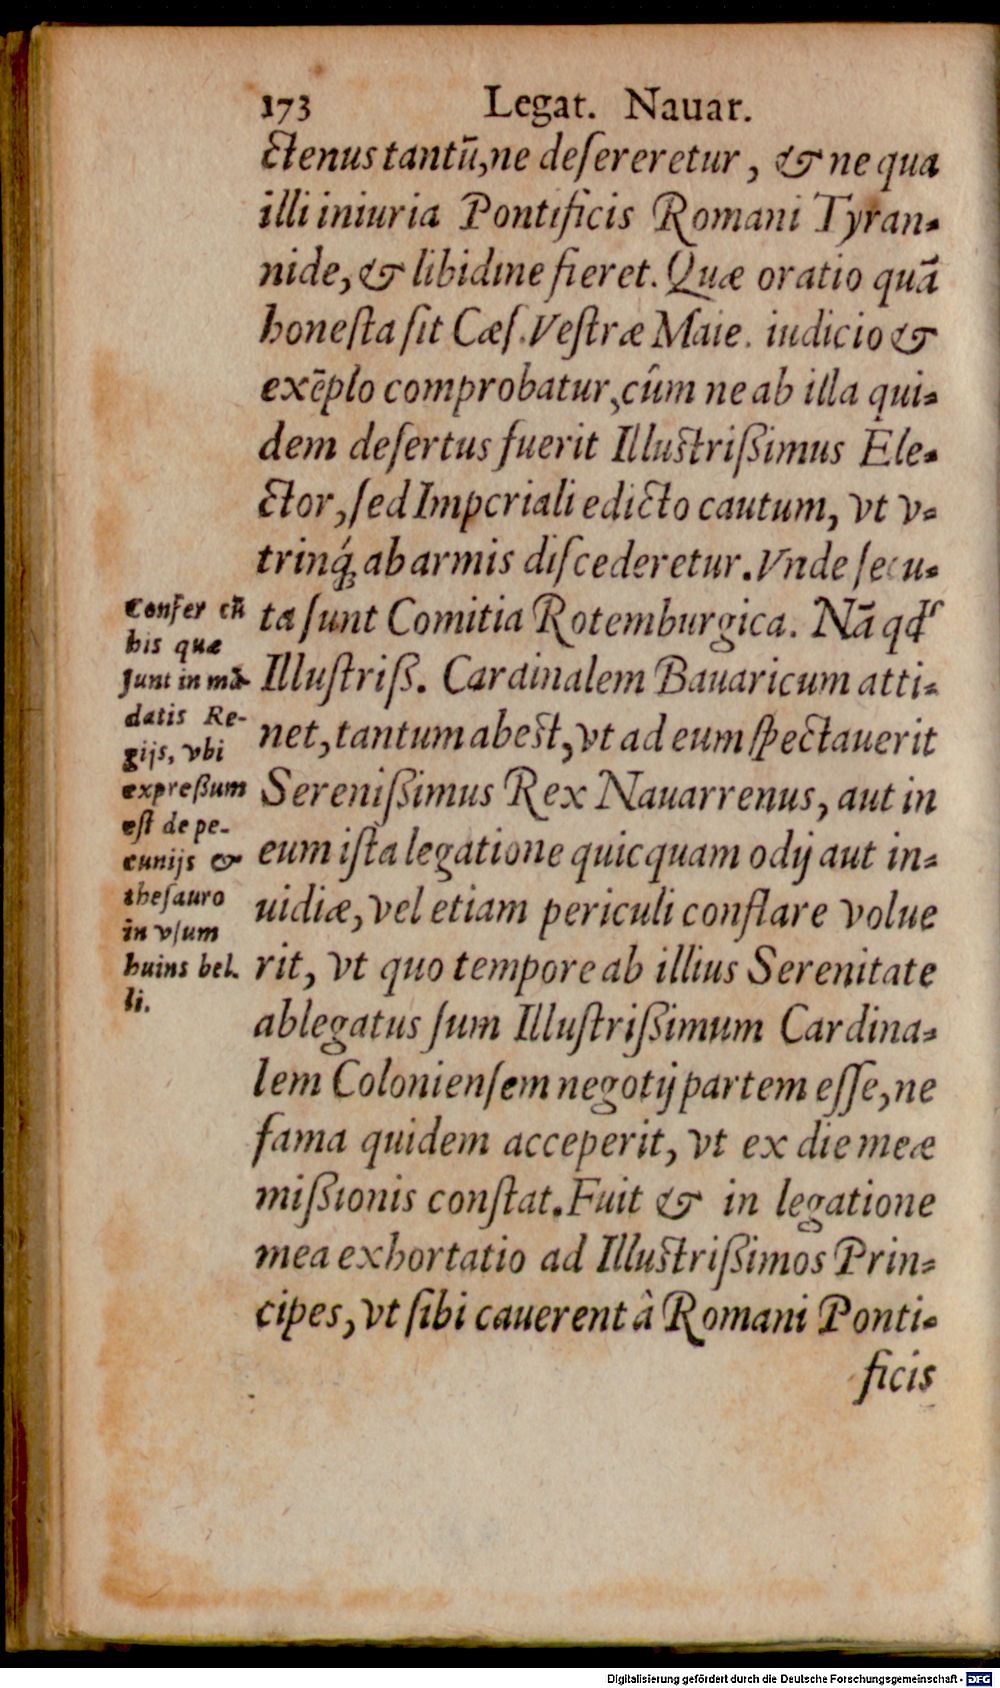 173 Legat. Nauar.
ctenus tantũ, ne deſereretur, & ne qua
illi iniuria Pontificis Romani Tyran-
nide, & libidine fieret. Quæ oratio quã
honeſta ſit Cæſ. Veſtræ Maie. iudicio &
exẽplo comprobatur, cûm ne ab illa qui-
dem deſertus fuerit Illuſtrißimus Ele-
ctor, ſed Imperiali edicto cautum, vt v-
trinq́; ab armis diſcederetur. Vnde ſecu-
ta ſunt Comitia Rotemburgica. Nã qđ
Illuſtriß. Cardinalem Bauaricum atti-
net, tantum abest, vt ad eum ſpectauerit
Sereniſſimus Rex Nauarrenus, aut in
eum iſta legatione quicquam odij aut in-
uidiæ, vel etiam periculi conflare volue
rit, vt quo tempore ab illius Serenitate
ablegatus ſum Illuſtrißimum Cardina-
lem Colonienſem negotij partem eſſe, ne
fama quidem acceperit, vt ex die meæ
mißionis conſtat. Fuit & in legatione
mea exhortatio ad Illuſtrißimos Prin-
cipes, vt ſibi cauerent â Romani Ponti-
ficis
Confer cũ
his quæ
ſunt in mã-
datis Re-
gijs, vbi
expreßum
eſt de pe-
cunijs &
theſauro
in vſum
huius bel-
li.
Digitalisierung gefördert durch die Deutsche Forschungsgemeinschaft - DFG